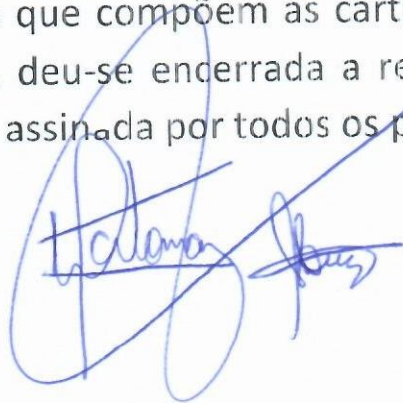 que compõem as cart
deu-se encerrada a re
assinada por todos os p